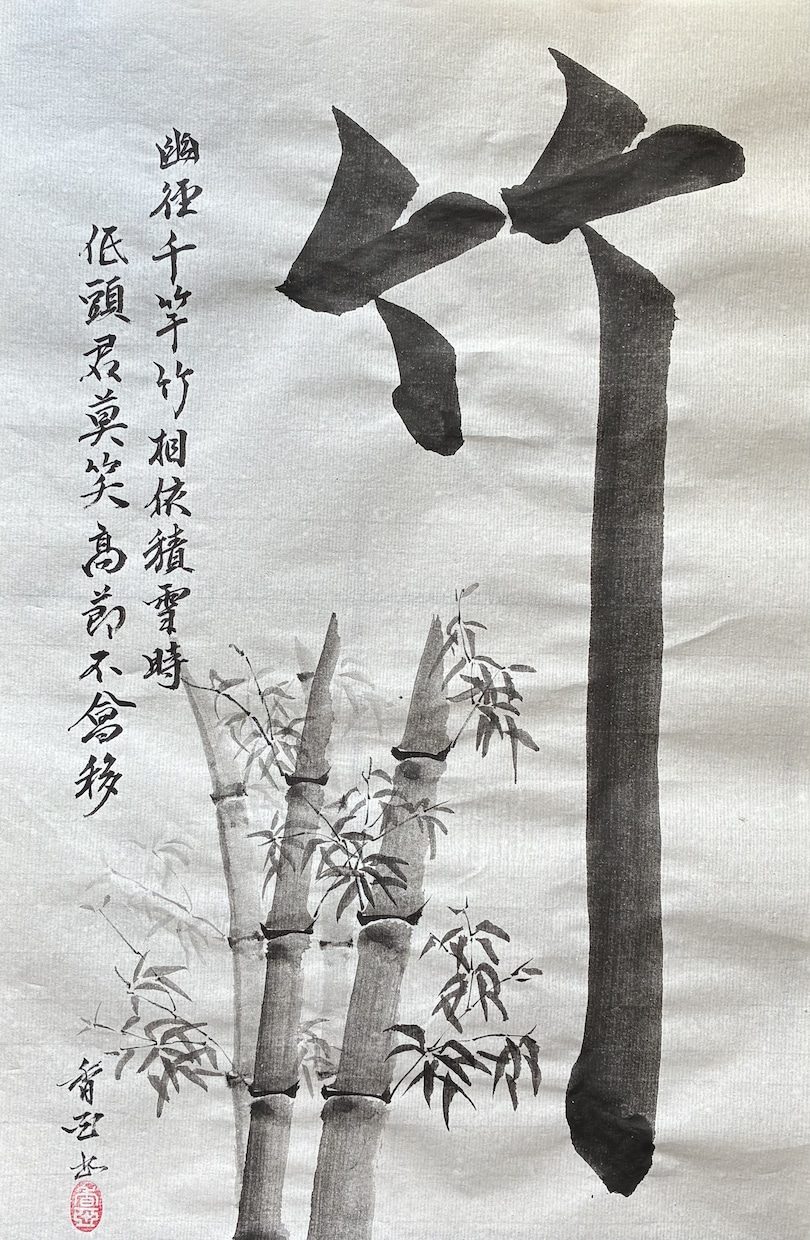 竹
幽徑千竿竹相依積雪時
低頭君莫笑高節不會移